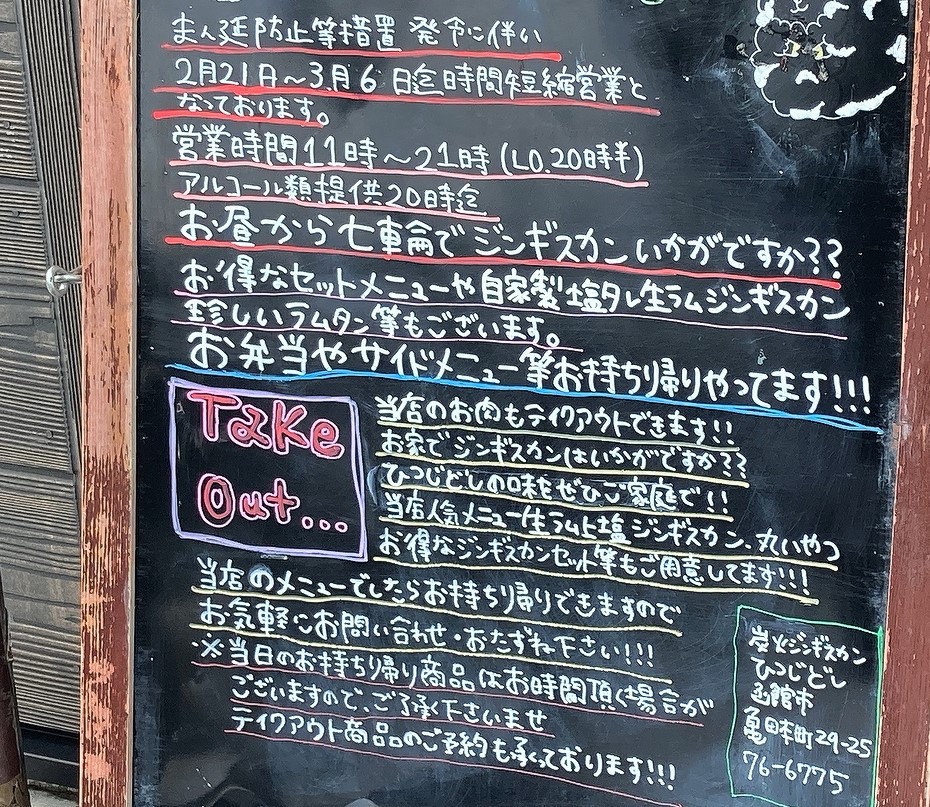 まん延防止等措置 発令に伴い
2月21日～3月6日迄時間短縮営業と
なっております。
営業時間11時～21時(LO.20時半)
アルコール類提供20時迄
お昼から七輪でジンギスカンいかがですか??
お得なセットメニューや自家製塩タレ生ラムジンギスカン
珍しいラムタン等もございます。
お弁当やサイドメニュー等お持ち帰りやってます!!!
Take
Out...
当店のお肉もテイクアウトできます!!
お家でジンギスカンはいかがですか??
ひつじどしの味をぜひご家庭で!!
当店人気メニュー生ラム上塩ジンギスカン、丸いやつ
お得なジンギスカンセット等もご用意してます!!!
当店のメニューでしたらお持ち帰りできますので
お気軽にお問い合わせ・おたずね下さい!!!
※当日のお持ち帰り商品はお時間頂く場合が
ございますので、ご了承下さいませ
テイクアウト商品のご予約も承っております!!!
炭火ジンギスカン
ひつじどし
函館市
亀田本町29-25
76-6775